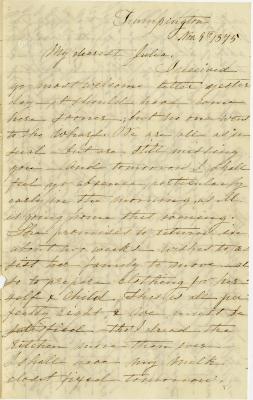 Trumpington
Nov 9th 1875
My dearest Julia,
I received
yr most welcome letter yester
day - it should have come
here sooner, but no one went
to the Wharf. We are all as
usual - but are still missing
you - and tomorrow I shall
feel yr absence particularly
early in the morning, as
is going home this evening.
She promises to return in
about two weeks - wishes to as
sist her family to move
to prepare clothing for her
self & child. This is all per
fectly right & we must be
satisfied tho' dread the
kitchen more than ever
I shall have my milk
closet fixed tomorrow.